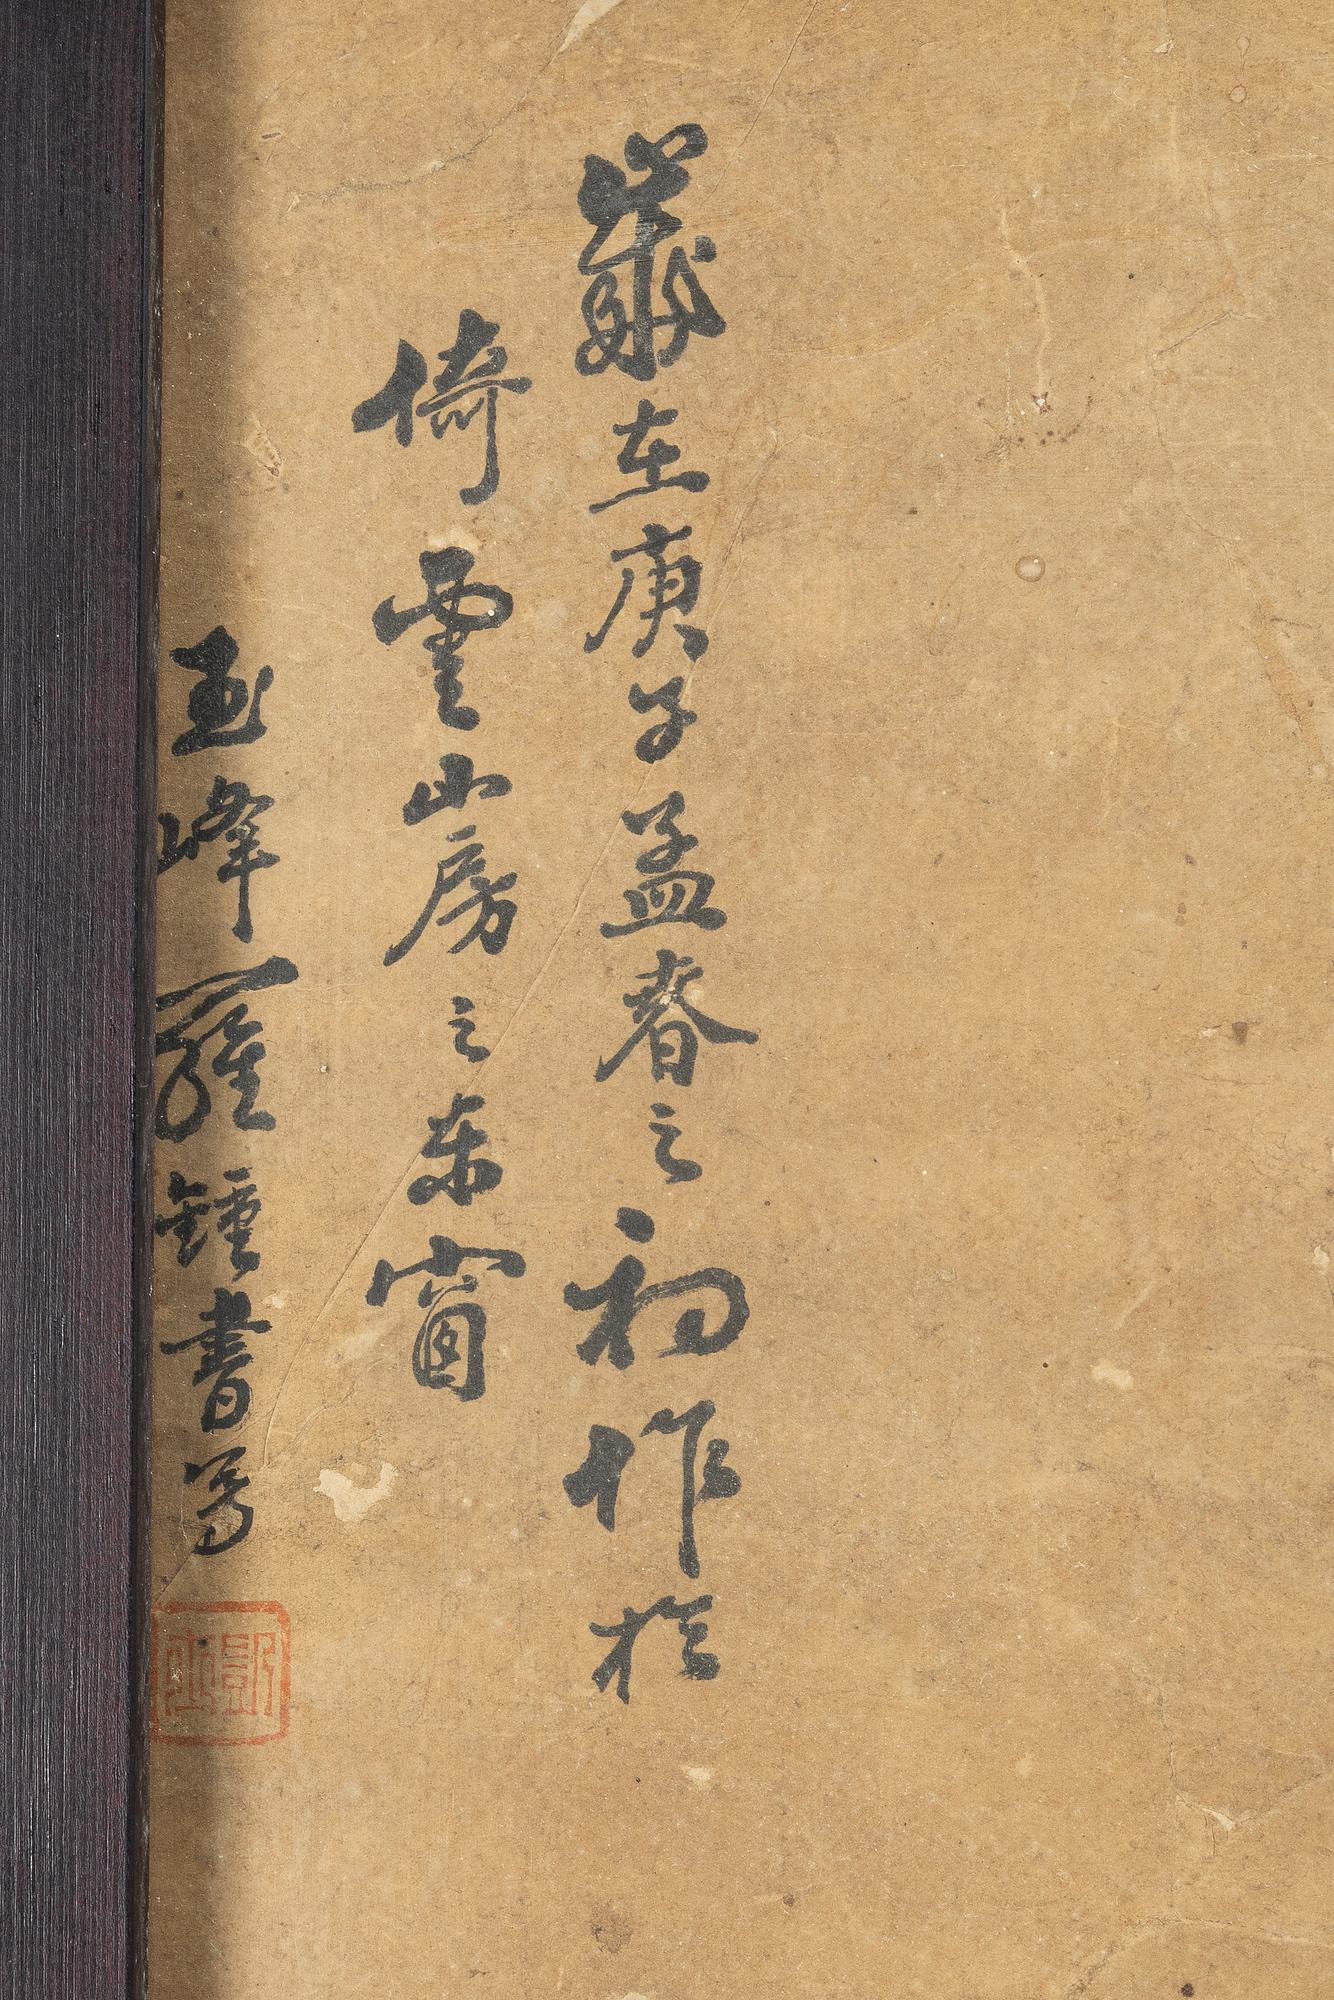 歲在庚子孟春之初作於
倚雲山房之東窗
玉峰羅鍾書寫